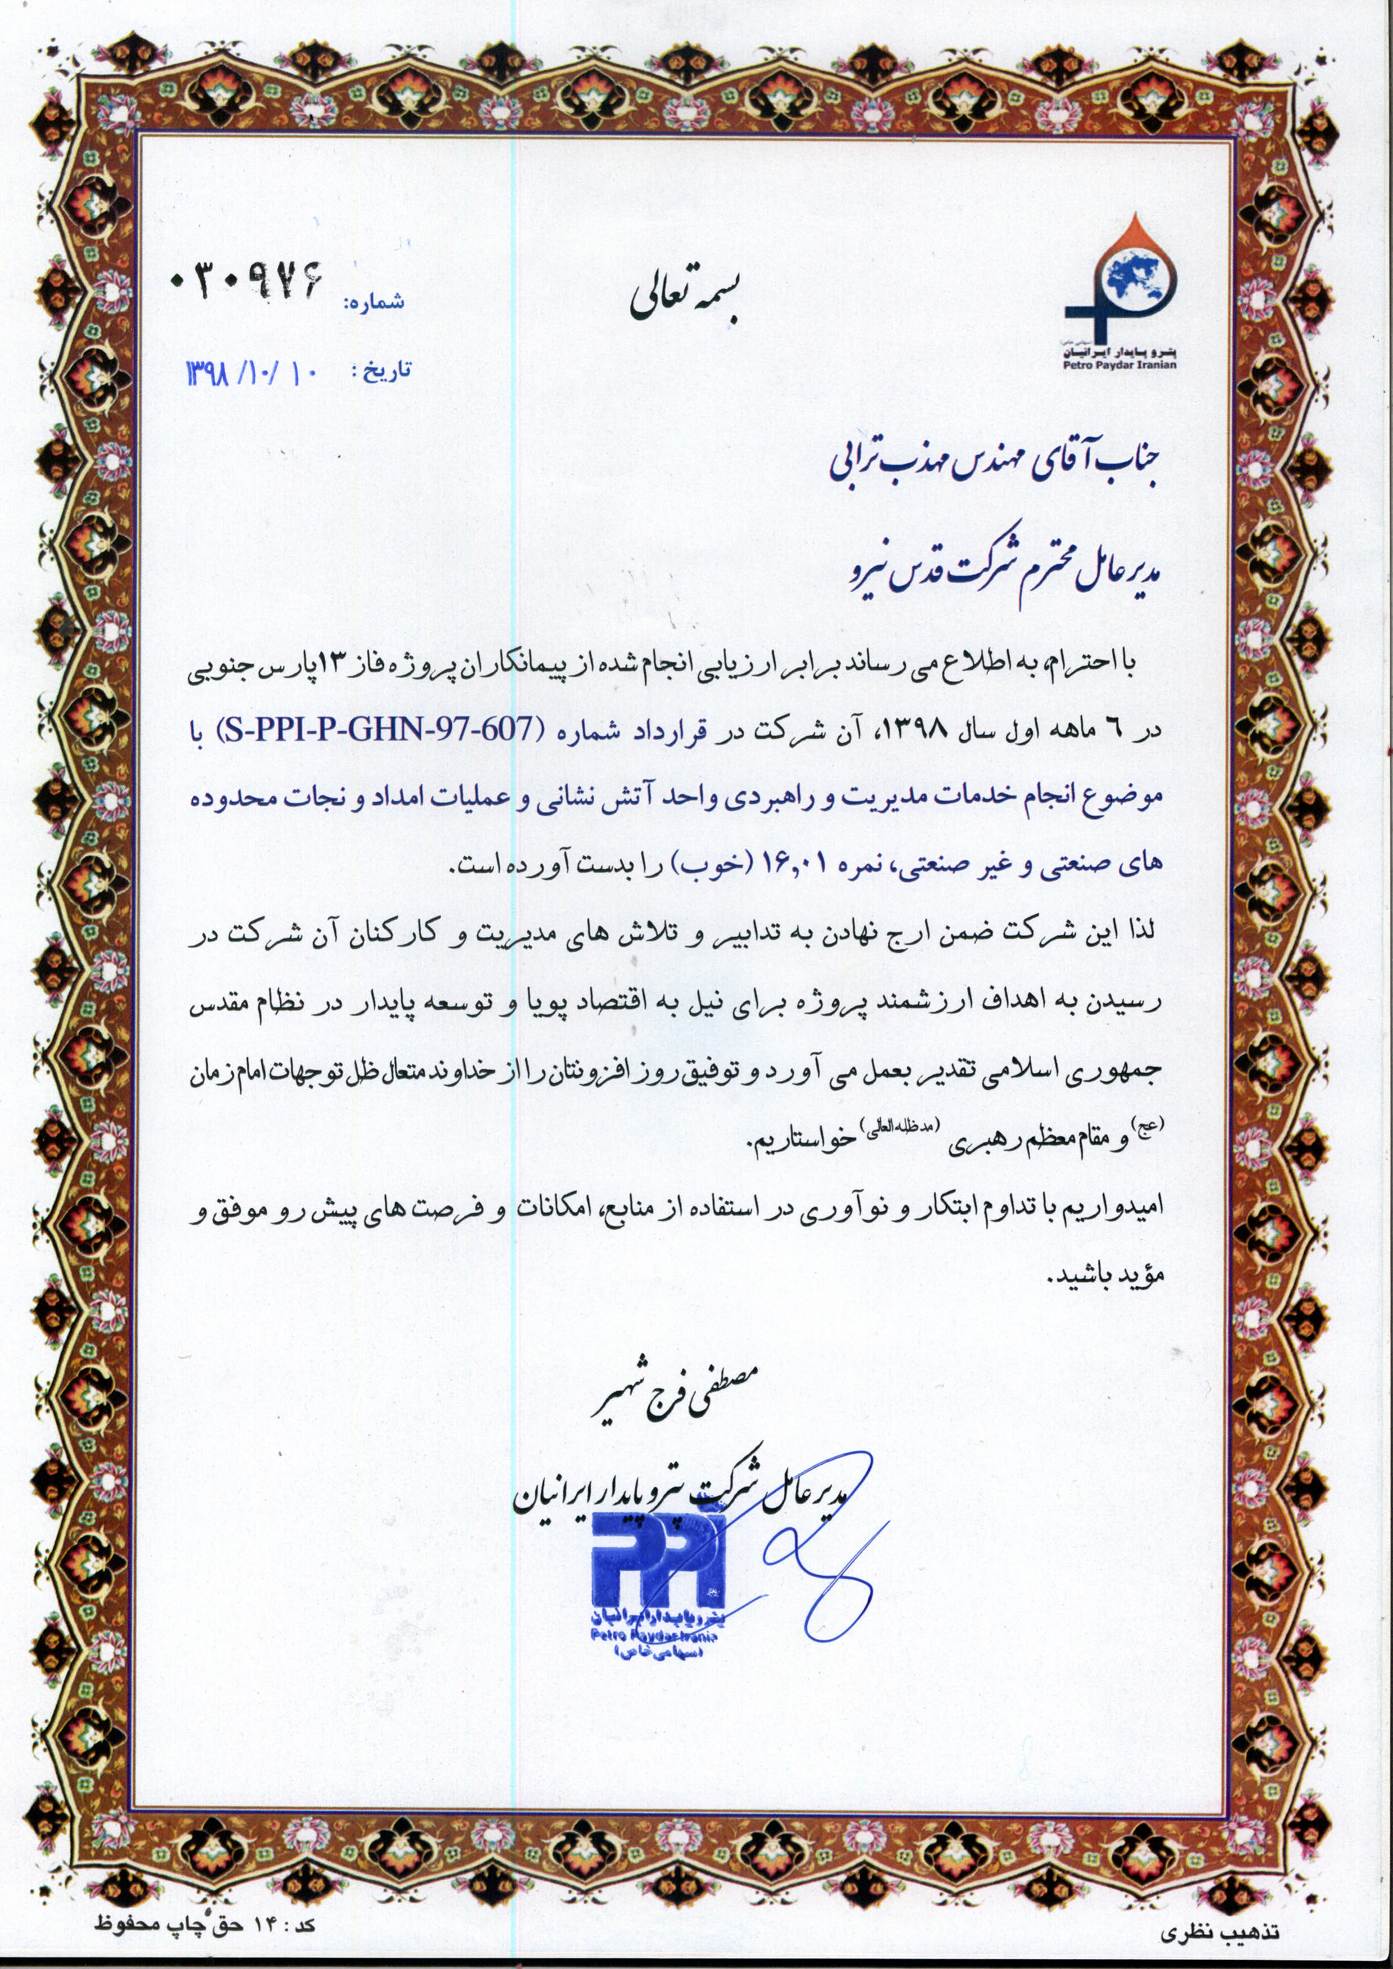 بسمه تعالی
شماره: ۰۳۰۹۷۶
تاریخ: ۱۳۹۸/۱۰/۱۰
پترو پایدار ایرانیان
Petro Paydar Iranian
جناب آقای مهندس مهذب ترابی
مدیرعامل محترم شرکت قدس نیرو
با احترام، به اطلاع می رساند برابر ارزیابی انجام شده از پیمانکاران پروژه فاز ۱۳ پارس جنوبی
در ٦ ماهه اول سال ۱۳۹۸، آن شرکت در قرارداد شماره (S-PPI-P-GHN-97-607) با
موضوع انجام خدمات مدیریت و راهبردی واحد آتش نشانی و عملیات امداد و نجات محدوده
های صنعتی و غیر صنعتی، نمره ۱۶,۰۱ (خوب) را بدست آورده است.
لذا این شرکت ضمن ارج نهادن به تدابیر و تلاش های مدیریت و کارکنان آن شرکت در
رسیدن به اهداف ارزشمند پروژه برای نیل به اقتصاد پویا و توسعه پایدار در نظام مقدس
جمهوری اسلامی تقدیر بعمل می آورد و توفیق روز افزونتان را از خداوند متعال ظل توجهات امام زمان
(عج) و مقام معظم رهبری (مدظله العالی) خواستاریم.
امیدواریم با تداوم ابتکار و نوآوری در استفاده از منابع، امکانات و فرصت های پیش رو موفق و
مؤید باشید.
مصطفی فرج شهیر
مدیرعامل شرکت پترو پایدار ایرانیان
PPI
پترو پایدار ایرانیان
Petro Paydar Irania
(سهامی خاص)
کد : ۱۴ حق چاپ محفوظ
تذهیب نظری